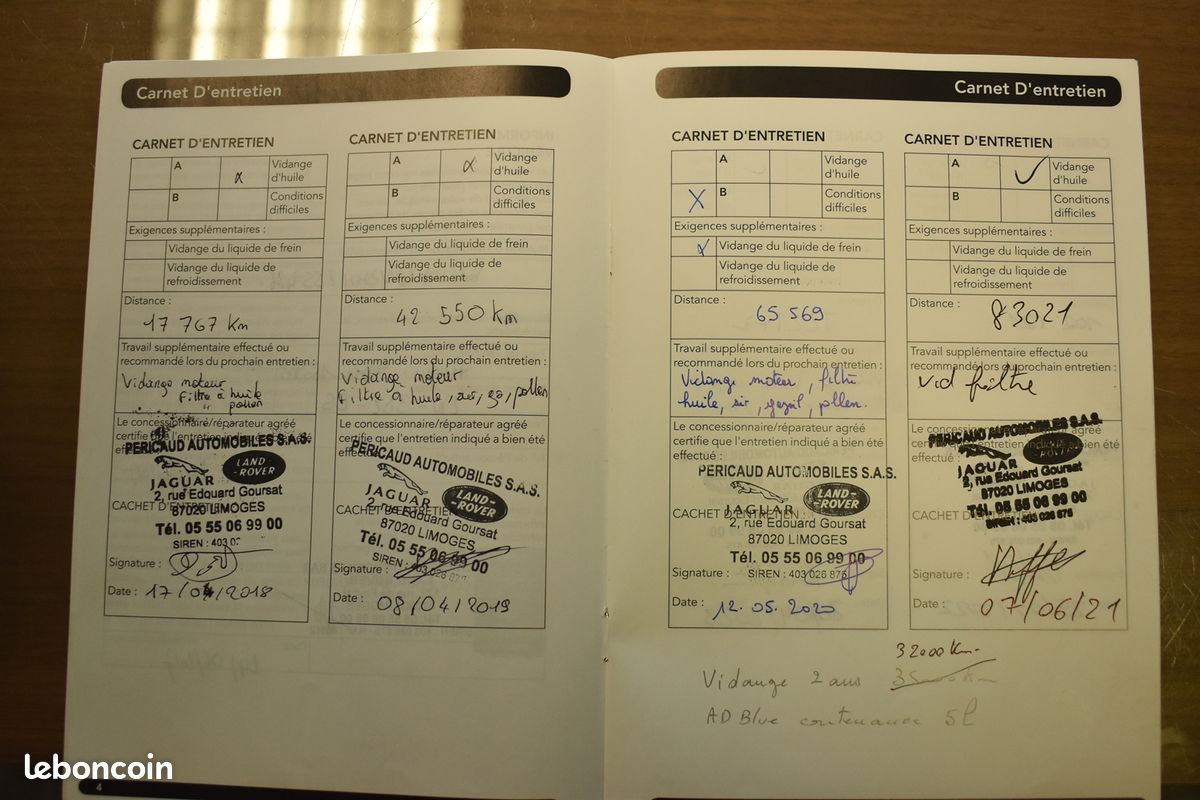 Carnet D'entretien
CARNET D'ENTRETIEN
A
Vidange
d'huile
B
Conditions
difficiles
Exigences supplémentaires :
Vidange du liquide de frein
Vidange du liquide de
refroidissement
Distance :
17 767 Km
Travail supplémentaire effectué ou
recommandé lors du prochain entretien :
Vidange moteur
Filtre à huile
" pollen
Le concessionnaire/réparateur agréé
certifie que l'entretien
PERICAUD AUTOMOBILES S.A.S.
JAGUAR
LAND-
ROVER
2, rue Edouard Goursat
CACHET D'ENTRETIEN
87020 LIMOGES
Tél. 05 55 06 99 00
SIREN : 403 0
Signature :
Date : 17/04/2018
CARNET D'ENTRETIEN
A
Vidange
d'huile
B
Conditions
difficiles
Exigences supplémentaires :
Vidange du liquide de frein
Vidange du liquide de
refroidissement
Distance :
42 550 Km
Travail supplémentaire effectué ou
recommandé lors du prochain entretien :
Vidange moteur
Filtre à huile, air, go, pollen
Le concessionnaire/réparateur agréé
certifie que l'entretien indiqué a bien été
effectué :
PERICAUD AUTOMOBILES S.A.S.
JAGUAR
LAND-
ROVER
CACHET D'ENTRETIEN
2, rue Edouard Goursat
87020 LIMOGES
Tél. 05 55 06 99 00
SIREN : 403 026 876
Signature :
Date : 08/04/2019
4
Carnet D'entretien
CARNET D'ENTRETIEN
A
Vidange
d'huile
X
B
Conditions
difficiles
Exigences supplémentaires :
Vidange du liquide de frein
Vidange du liquide de
refroidissement
Distance :
65 569
Travail supplémentaire effectué ou
recommandé lors du prochain entretien :
Vidange moteur, filtre
huile, air, gazoil, pollen.
Le concessionnaire/réparateur agréé
certifie que l'entretien indiqué a bien été
effectué :
PERICAUD AUTOMOBILES S.A.S.
JAGUAR
LAND-
ROVER
CACHET D'ENTRETIEN :
2, rue Edouard Goursat
87020 LIMOGES
Tél. 05 55 06 99 00
Signature :
SIREN : 403 026 876
Date : 12.05.2020
CARNET D'ENTRETIEN
A
✓
Vidange
d'huile
B
Conditions
difficiles
Exigences supplémentaires :
Vidange du liquide de frein
Vidange du liquide de
refroidissement
Distance :
83021
Travail supplémentaire effectué ou
recommandé lors du prochain entretien :
vid filtre
Le concessionnaire/réparateur agréé
certifie que l'entretien indiqué a bien été
effectué :
PERICAUD AUTOMOBILES S.A.S.
JAGUAR
ROVER
2, rue Edouard Goursat
87020 LIMOGES
CACHET
Tél. 05 55 06 99 00
SIREN : 403 026 876
Signature :
Date : 07/06/21
32000 Km
Vidange 2 ans
AD Blue contenance 5l
leboncoin